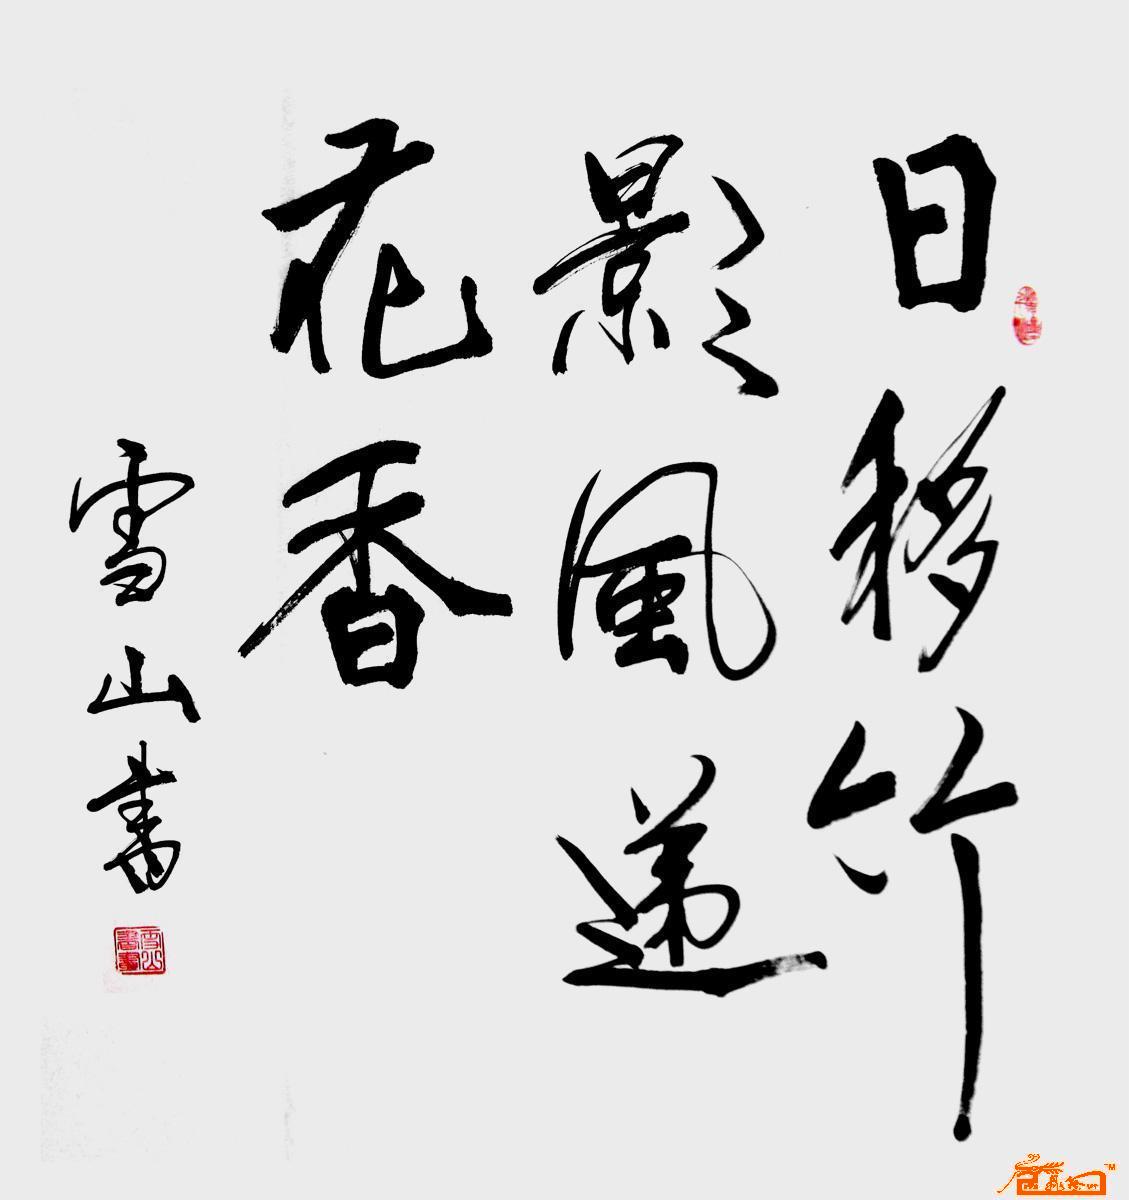 日移竹
影風遞
花香
雪山書